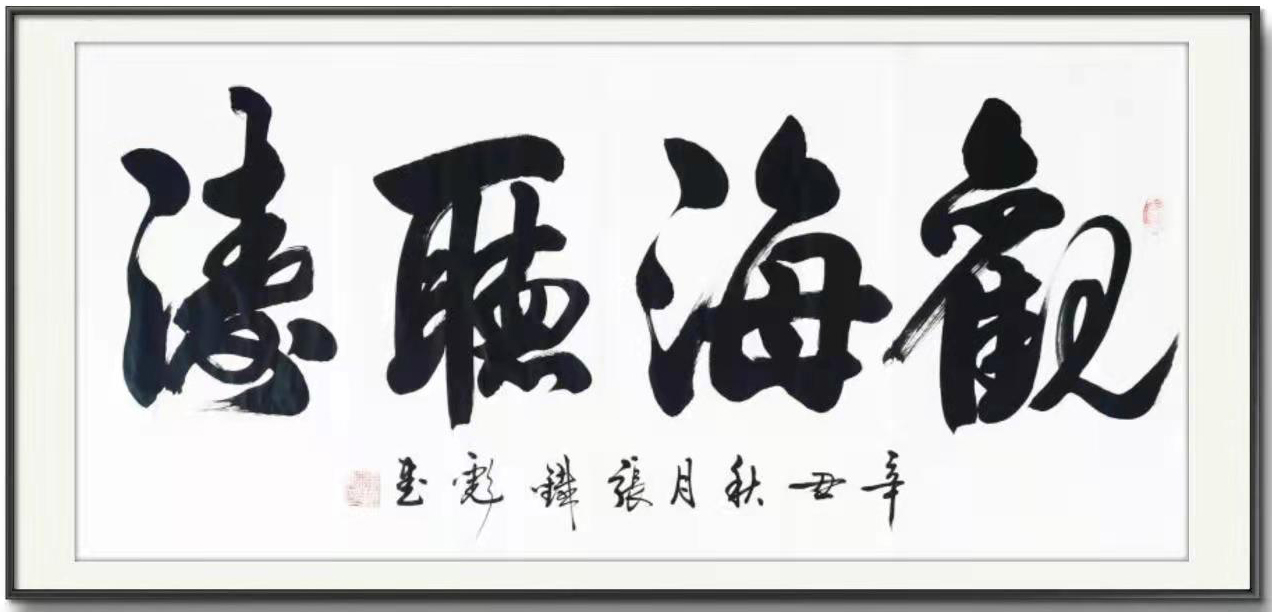 觀海聽濤
辛丑秋月張鐵彪書